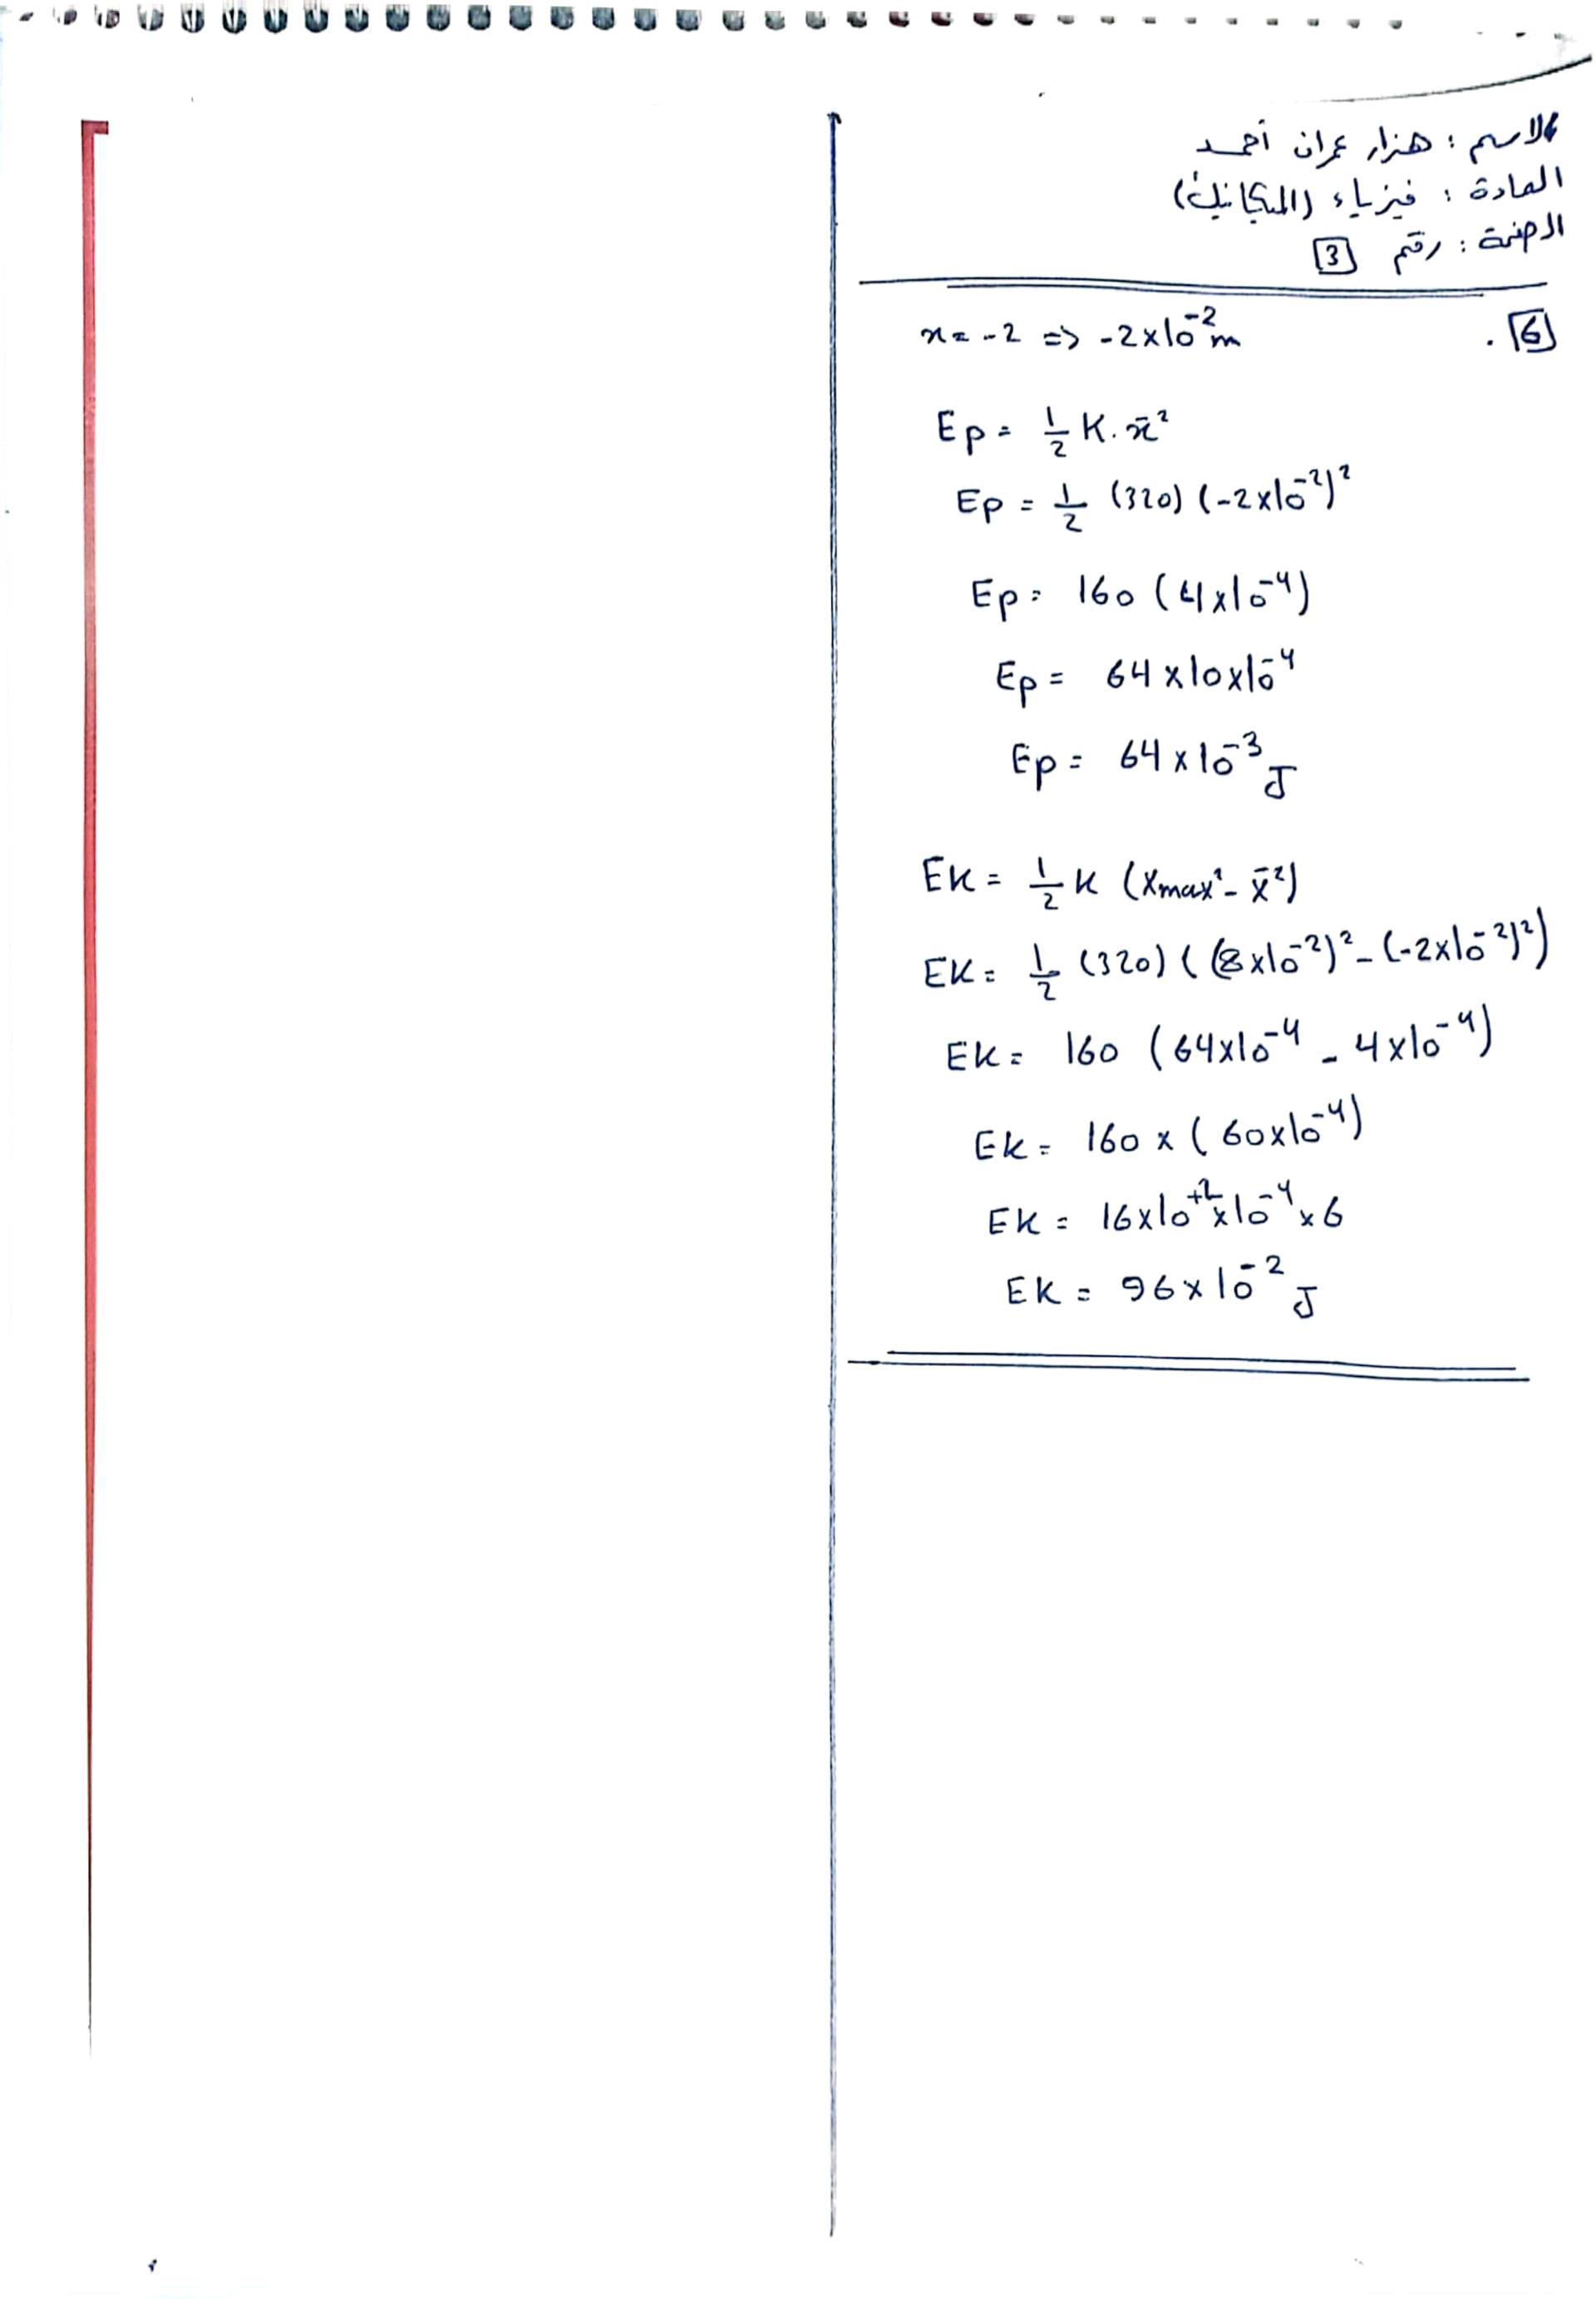 الاسم : هزار عمران أحمد
المادة : فيزياء (الميكانيك)
الصفحة : رقم 3
6 .
x = -2 => -2x10⁻² m
Ep = 1/2 K . x̄²
Ep = 1/2 (320) (-2x10⁻²)²
Ep = 160 (4x10⁻⁴)
Ep = 64 x 10 x 10⁻⁴
Ep = 64 x 10⁻³ J
EK = 1/2 K (Xmax² - x̄²)
EK = 1/2 (320) ( (8x10⁻²)² - (-2x10⁻²)²)
EK = 160 (64x10⁻⁴ - 4x10⁻⁴)
EK = 160 x ( 60x10⁻⁴)
EK = 16x10⁺² x10⁻⁴ x 6
EK = 96 x 10⁻² J